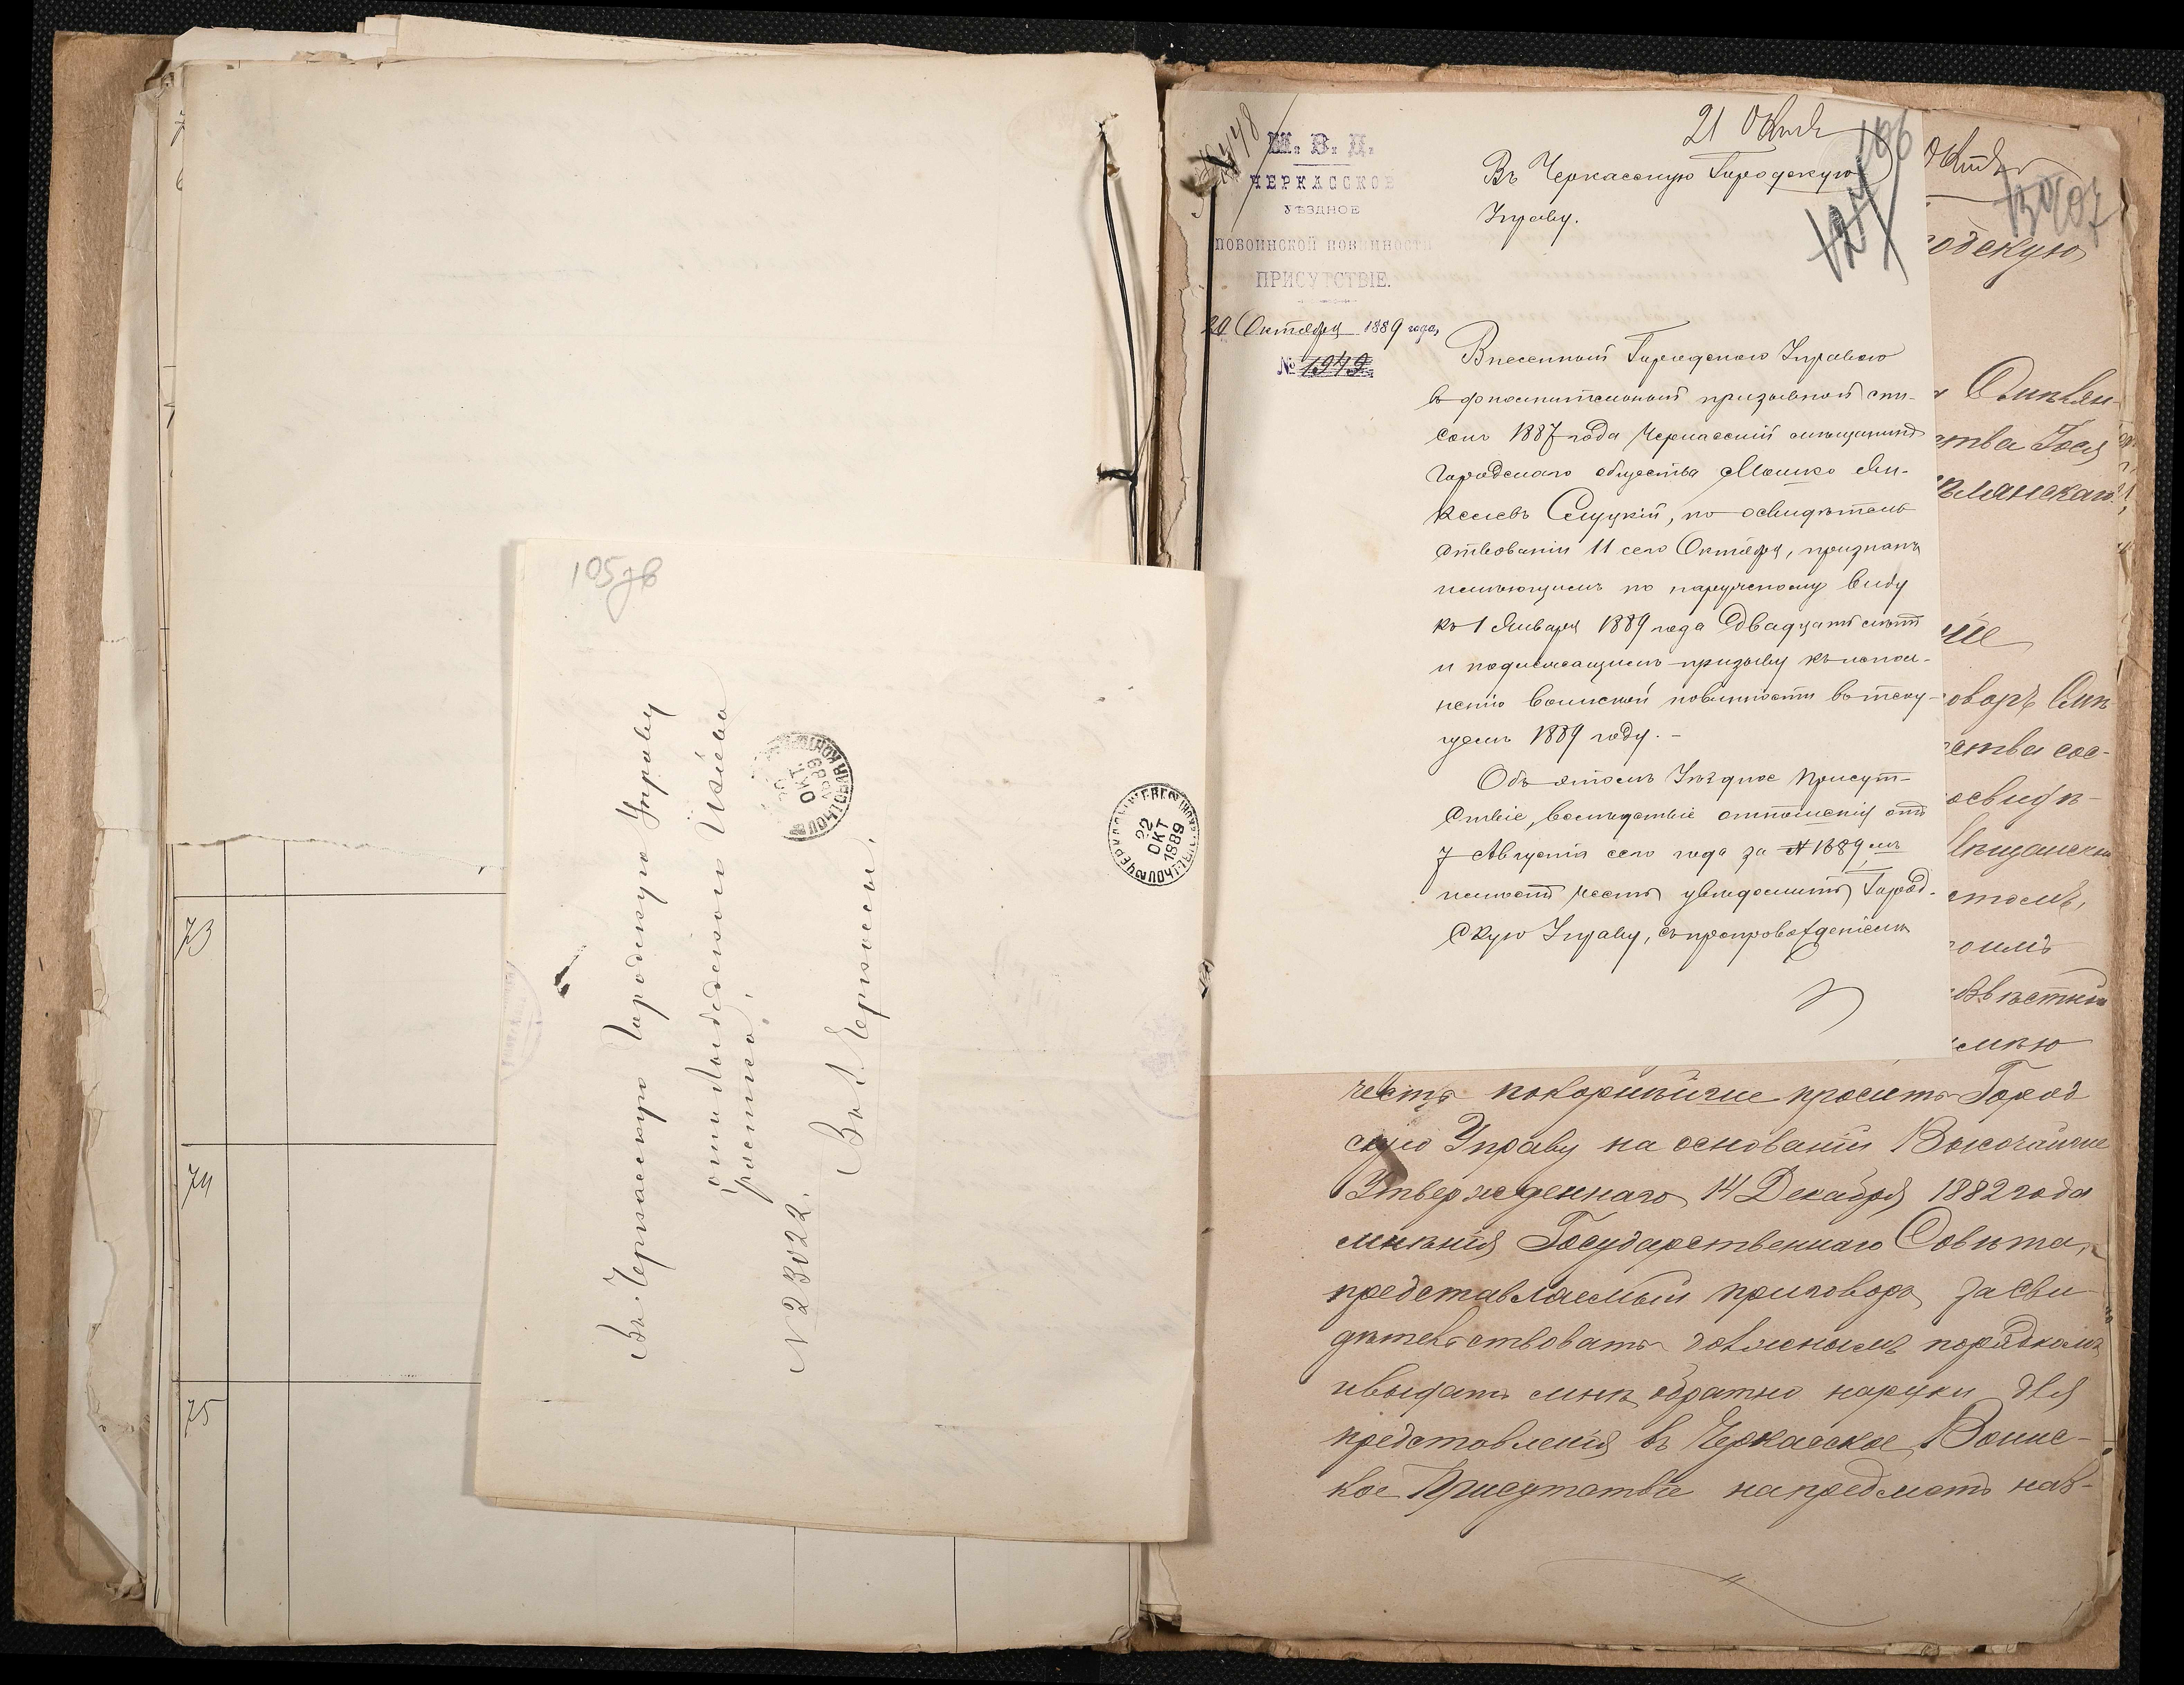 73
74
75
105 зв
Въ Черкасскую Городскую Управу
отъ Лысяенскаго
N 23022.
Въ г. Черкассы.
ОКТ
1889
22
ОКТ
1889
М. В. Д.
ЧЕРКАССКОЕ
УѢЗДНОЕ
ПО ВОИНСКОЙ ПОВИННОСТИ
ПРИСУТСТВІЕ.
20 Октября 1889 года
№ 1949
21 Окт
106
127
Въ Черкасскую Городскую
Управу.
Внесенный Городскою Управою
въ дополнительный призывной спи-
сокъ 1887 года Черкасскій мѣщанинъ
Городскаго общества Мошко Ян-
келевъ Слуцкій, по освидѣтель
ствованіи 11 сего Октября, признанъ
имѣющимъ по наружному виду
къ 1 Января 1889 года двадцать лѣтъ
и подлежащимъ призыву къ испол-
ненію воинской повинности въ теку-
щемъ 1889 году. -
Объ этомъ Уѣздное Присут-
ствіе, вслѣдствіе отношенія отъ
7 Августа сего года за N 1689, съ
имѣетъ честь увѣдомить Город-
скую Управу, съ препровожденіемъ
107
одскую
ства
ѣлянскаго
оворъ
ства сос-
освидѣ-
Мѣщанск
честь покорнѣйше просить Город
скую Управу на основаніи Высочайше
Утвержденнаго 14 Декабря 1882 года
мнѣнія Государственнаго Совѣта,
представляемый приговоръ засви
дѣтельствовать должнымъ порядкомъ
и выдать мнѣ обратно на руки для
представленія въ Черкасское Воинс-
кое Присутствіе на предметъ нав-